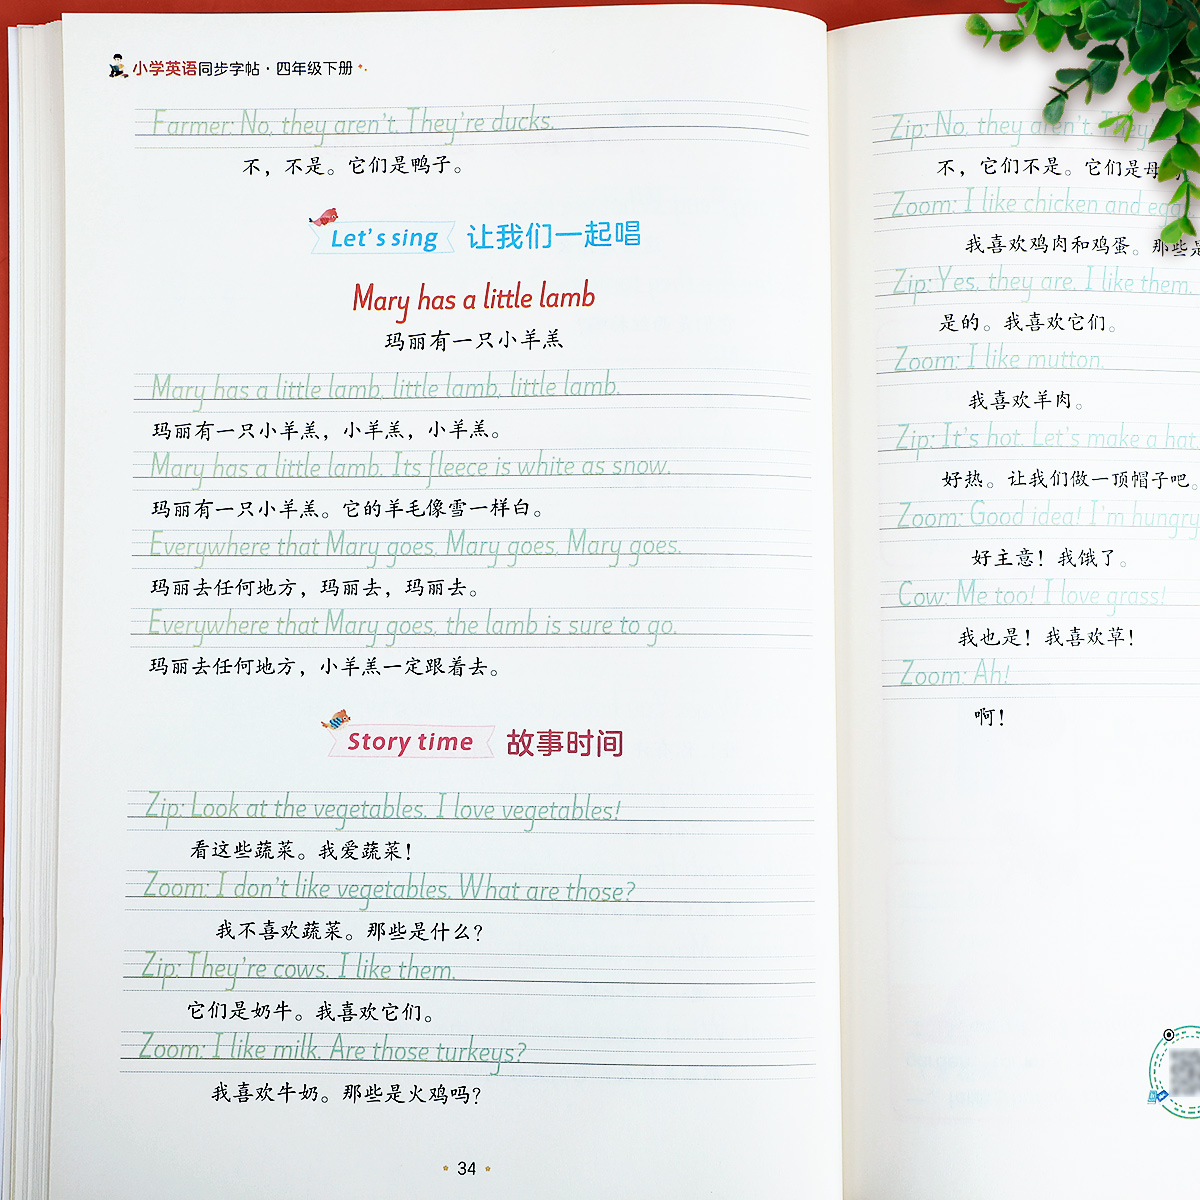 小学英语同步字帖·四年级下册
Farmer: No, they aren't. They're ducks.
不，不是。它们是鸭子。
Let's sing 让我们一起唱
Mary has a little lamb
玛丽有一只小羊羔
Mary has a little lamb, little lamb, little lamb.
玛丽有一只小羊羔，小羊羔，小羊羔。
Mary has a little lamb. Its fleece is white as snow.
玛丽有一只小羊羔。它的羊毛像雪一样白。
Everywhere that Mary goes, Mary goes, Mary goes.
玛丽去任何地方，玛丽去，玛丽去。
Everywhere that Mary goes, the lamb is sure to go.
玛丽去任何地方，小羊羔一定跟着去。
Story time 故事时间
Zip: Look at the vegetables. I love vegetables!
看这些蔬菜。我爱蔬菜！
Zoom: I don't like vegetables. What are those?
我不喜欢蔬菜。那些是什么？
Zip: They're cows. I like them.
它们是奶牛。我喜欢它们。
Zoom: I like milk. Are those turkeys?
我喜欢牛奶。那些是火鸡吗？
34
Zip: No, they aren't. They'
不，它们不是。它们是母
Zoom: I like chicken and
我喜欢鸡肉和鸡蛋。那些是
Zip: Yes, they are. I like them.
是的。我喜欢它们。
Zoom: I like mutton.
我喜欢羊肉。
Zip: It's hot. Let's make a hat.
好热。让我们做一顶帽子吧。
Zoom: Good idea! I'm hungry
好主意！我饿了。
Cow: Me too! I love grass!
我也是！我喜欢草！
Zoom: Ah!
啊！